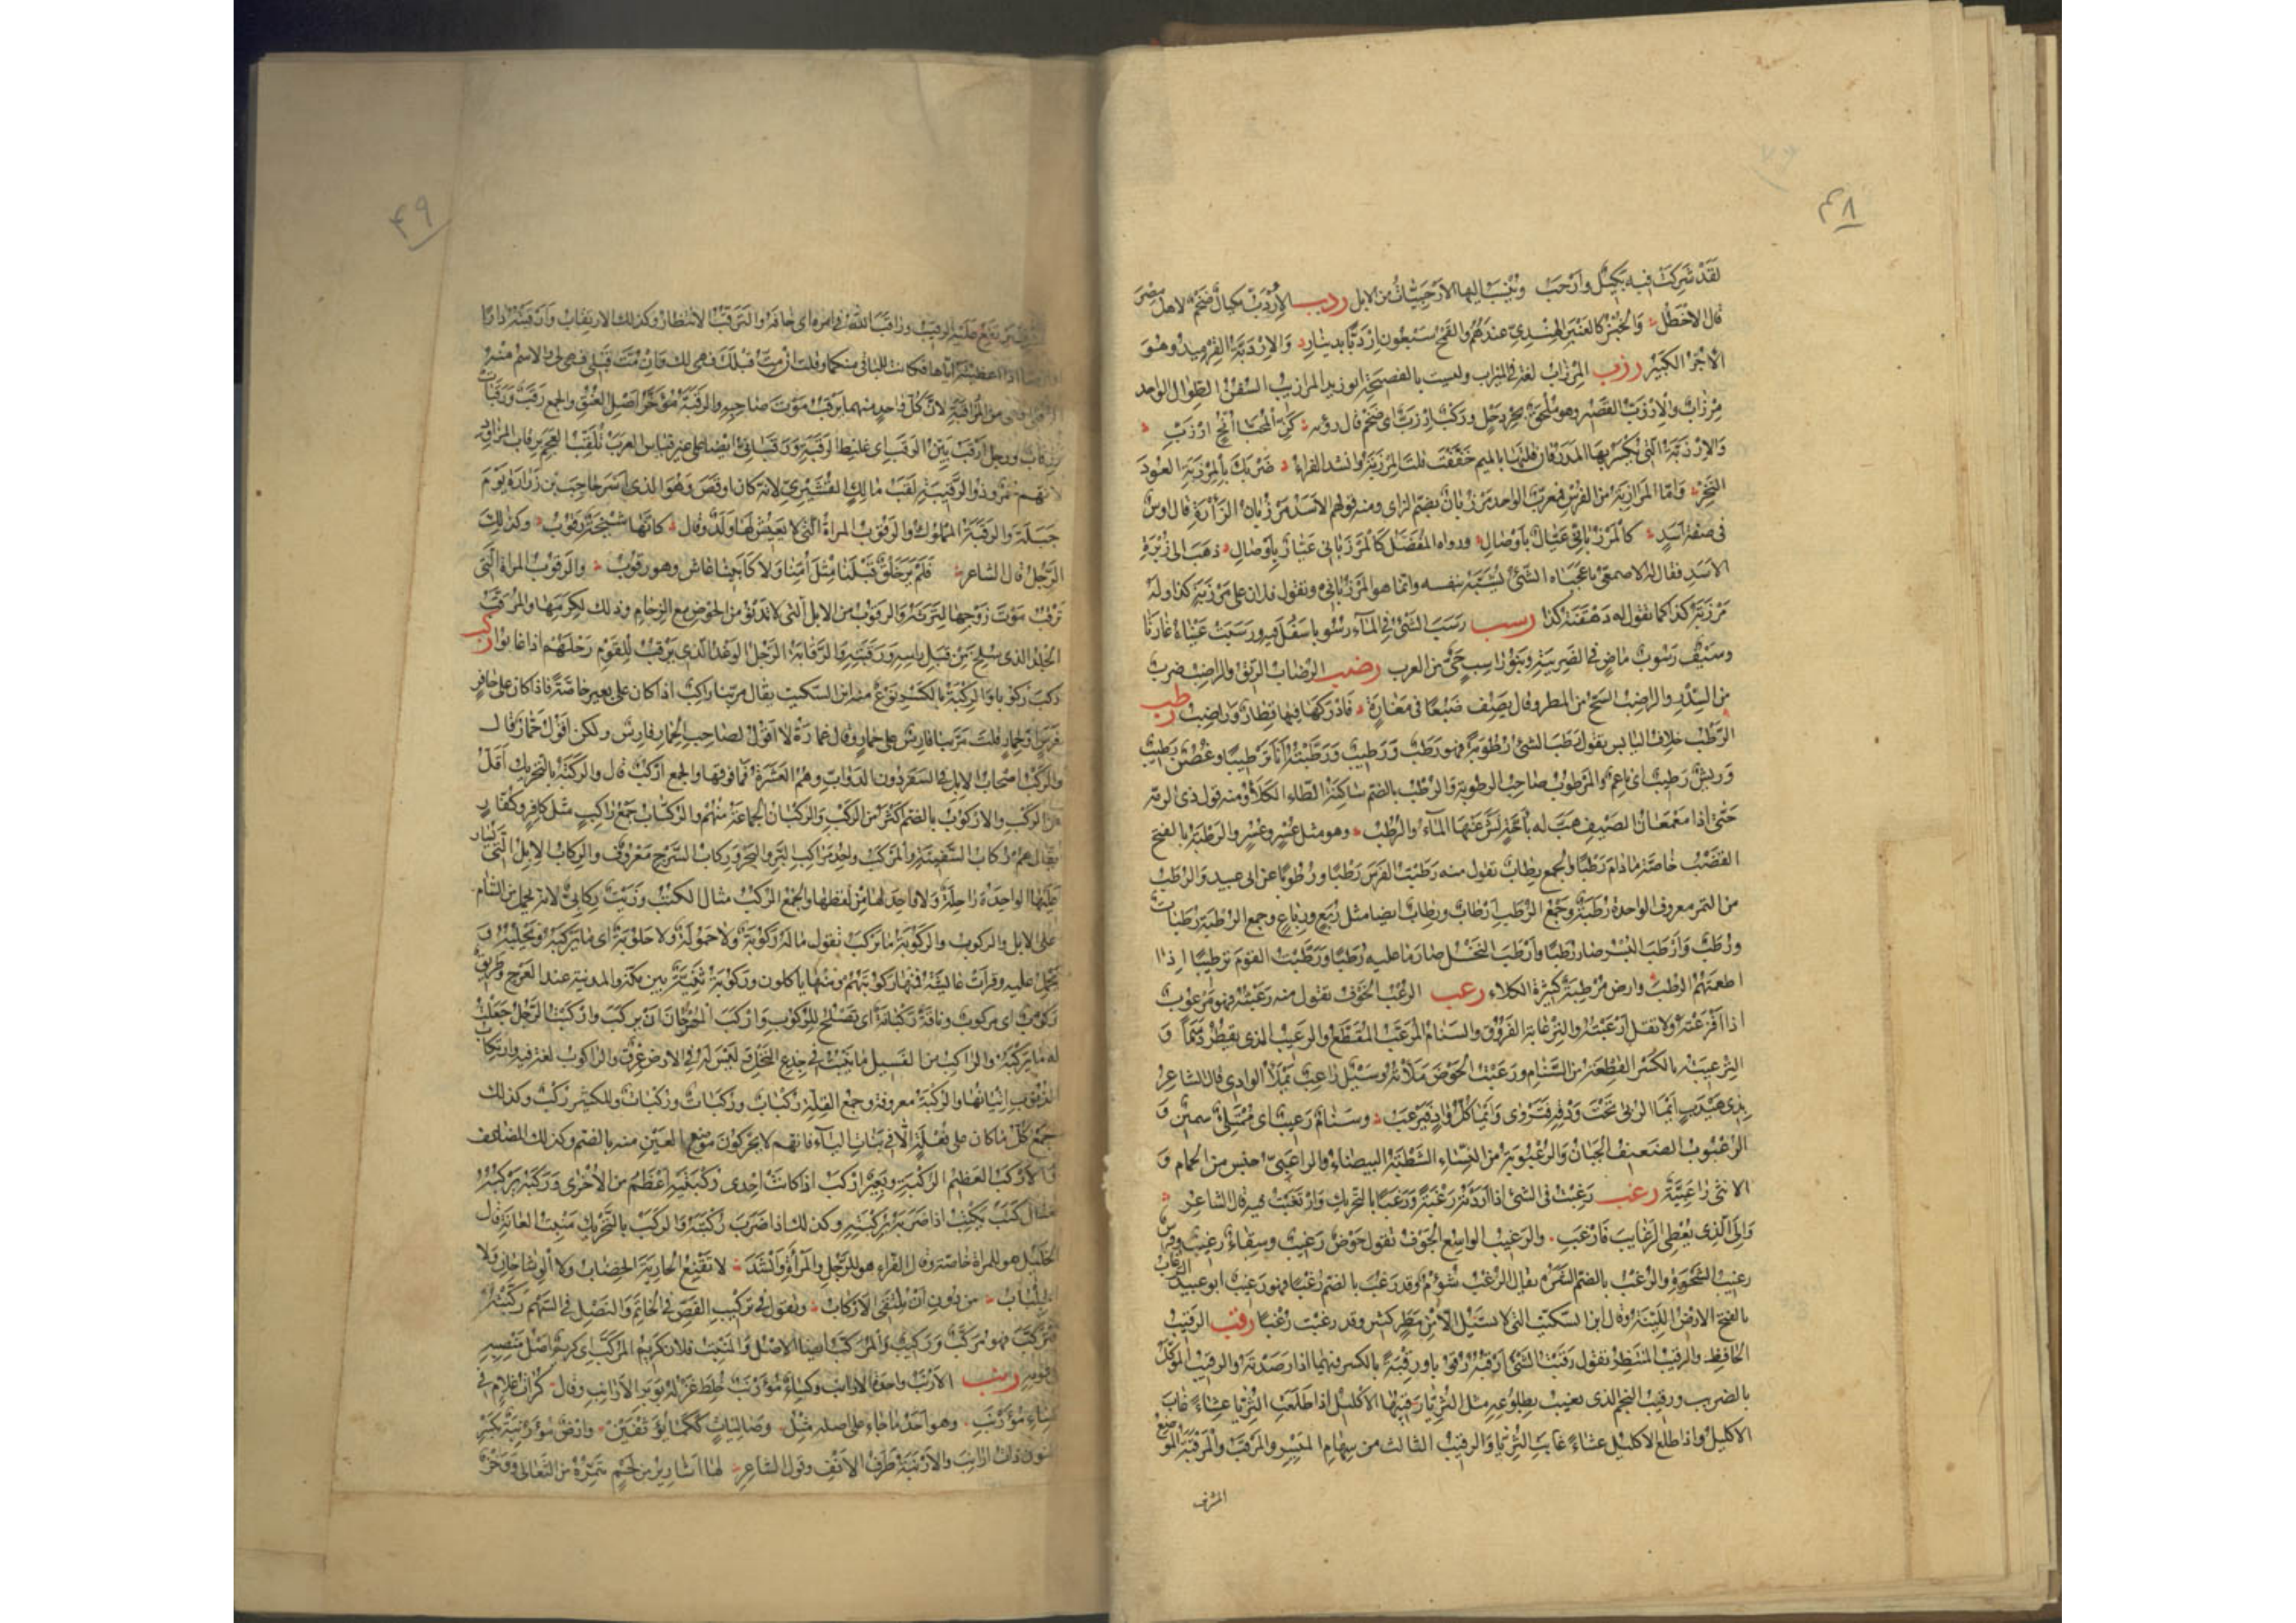 ۴۸
لقد شركت فيه بكيل وأرحب وتنسب اليها الارحبيات من الابل ردب الاردب مكيال ضخم لاهل مصر
قال الاخطل والخبز كالعنبر الهندي عندهم والقمح سبعون اردبا بدينار والاردبة القرميد وهو
الآجر الكبير رزب المرزاب لغة في الميزاب وليست بالفصيحة ابو زيد المرازيب السفن الطوال الواحد
مرزاب والارزب القصير وهو ملحق بجردحل وركب ارزب اى ضخم قال رؤبة كز المحيا انح ارزب
والارزبة التي يكسر بها المدر فان قلتها بالميم خففت قلت المرزبة وانشد الفراء ضربك بالمرزبة العود
النخر واما المرازبة من الفرس فمعرب الواحد مرزبان بضم الزاى ومنه قولهم للاسد مرزبان الزأرة قال اوس
في صفة اسد كالمرزباني عيال بأوصال ورواه المفضل كالمرزباني عيار بأوصال ذهب الى زبرة
الاسد فقال له الاصمعي يا عجباه الشئ يشبه بنفسه وانما هو المرزباني وتقول فلان على مرزبة كذا وله
مرزبة كذا كما تقول له دهقنة كذا رسب رسب الشئ في الماء رسوبا سفل فيه ورسبت عيناه غارتا
وسيف رسوب ماض في الضريبة وبنو راسب حي من العرب رضب الرضاب الريق والراضب ضرب
من السدر والراضب السح من المطر وقال يصف ضبعا في مغارة فادركها فيها قطار وراضب رطب
الرطب خلاف اليابس تقول رطب الشئ رطوبة فهو رطب ورطيب ورطبته انا ترطيبا وغصن رطيب
وريش رطيب اى ناعم والمرطوب صاحب الرطوبة والرطب بالضم ساكنة الطاء الكلأ ومنه قول ذى الرمة
حتى اذا معمعان الصيف هب له باجة نش عنها الماء والرطب وهو مثل عسر وعسر والرطبة بالفتح
القضب خاصة ما دام رطبا والجمع رطاب تقول منه رطبت الفرس رطبا ورطوبا عن ابى عبيد والرطب
من التمر معروف الواحدة رطبة وجمع الرطب ارطاب ورطاب ايضا مثل ربع ورباع وجمع الرطبة رطبات
ورطب وارطب البسر صار رطبا وارطب النخل صار ما عليه رطبا ورطبت القوم ترطيبا اذا
اطعمتهم الرطب وارض مرطبة كثيرة الكلاء رعب الرعب الخوف تقول منه رعبته فهو مرعوب
اذا افزعته ولا تقل ارعبته والترعابة الفروق والسنام المرعب المقطع والرعيب الذى يقطر دسما و
الترعيبة بالكسر القطعة من السنام ورعبت الحوض ملأته وسيل راعب يملأ الوادي قال الشاعر
بذى هيدب ايما الربى تحت ودقه فتروى وايما كل واد فيرعب وسنام رعيب اى ممتلئ سمين و
الرعبوب الضعيف الجبان والرعبوبة من النساء الشطبة البيضاء والراعبي جنس من الحمام و
الانثى راعبية رغب رغبت في الشئ اذا اردته رغبة ورغبا بالتحريك وارتغبت فيه قال الشاعر
والى الذى يعطى الرغايب فارغب والرغيب الواسع الجوف تقول حوض رغيب وسقاء رغيب وفرس
رغيب الشحوة والرغب بالضم الشره يقال الرغب شؤم وقد رغب بالضم رغبا فهو رغيب ابو عبيد الرغاب
بالفتح الارض اللينة وقال ابن السكيت التى لا تسيل الا من مطر كثير وقد رغبت رغبا رقب الرقيب
الحافظ والرقيب المنتظر تقول رقبت الشئ ارقبه رقوبا ورقبة بالكسر فيهما اذا رصدته والرقيب الموكل
بالضريب ورقيب النجم الذى يغيب بطلوعه مثل الثريا رقيبها الاكليل اذا طلعت الثريا عشاء غاب
الاكليل واذا طلع الاكليل عشاء غابت الثريا والرقيب الثالث من سهام الميسر والمرقب والمرقبة الموضع
المشرف
۴۹
يرتفع عليه الرقيب وراقب الله في امره اى خافه والترقب الانتظار وكذلك الارتقاب وارقبته دارا
اذا اعطيته اياها فكانت للباقي منكما وقلت ان مت قبلك فهى لك وان مت قبلى فهى لى والاسم منه
من المراقبة لان كل واحد منهما يرقب موت صاحبه والرقبة مؤخر اصل العنق والجمع رقب ورقبات
ورقاب ورجل ارقب بين الرقب اى غليظ الرقبة ورقباني ايضا على غير قياس العرب تلقب العجم برقاب المزاود
لانهم حمر وذو الرقيبة لقب مالك القشيرى لانه كان اوقص وهو الذى اسر حاجب بن زرارة يوم
جبلة والرقبة المملوك والرقوب المراة التى لا يعيش لها ولد وقال كانها شيخة رقوب وكذلك
الرجل قال الشاعر فلم ير خلق قبلنا مثل امنا ولا كابينا عاش وهو رقوب والرقوب المراة التى
ترقب موت زوجها لترثه والرقوب من الابل التى لا تدنو من الحوض مع الزحام وذلك لكرمها والمرقب
الجلد الذى يسلخ من قبل راسه ورقبته والرقابة الرجل الوغد الذى يرقب للقوم رحلهم اذا غابوا ركب
ركب ركوبا والركبة بالكسر نوع منه ابن السكيت يقال مر بنا راكب اذا كان على بعير خاصة فاذا كان على حافر
فرس او حمار قلت مر بنا فارس على حمار وقال عمارة لا اقول لصاحب الحمار فارس ولكن اقول حمار قال
والركب اصحاب الابل في السفر دون الدواب وهم العشرة فما فوقها والجمع اركب قال والركبة بالتحريك اقل
من الركب والاركوب بالضم اكثر من الركب والركبان الجماعة منهم والركاب جمع راكب مثل كافر وكفار
يقال هم ركاب السفينة والمركب واحد مراكب البر والبحر وركاب السرج معروف والركاب الابل التى يسار
عليها الواحدة راحلة ولا واحد لها من لفظها والجمع الركب مثال الكتب وزيت ركابى لانه يحمل من الشام
على الابل والركوب والركوبة ما يركب تقول ما له ركوبة ولا حمولة ولا حلوبة اى ما يركبه ويحلبه و
يحمل عليه وقرات عائشة فمنها ركوبتهم ومنها ياكلون وركوبة ثنية بين مكة والمدينة عند العرج وطريق
ركوب اى مركوب وناقة ركبانة اى تصلح للركوب واركب المهر حان ان يركب واركبت الرجل جعلت
له ما يركبه والراكب من الفسيل ما ينبت في جذع النخل وليس له في الارض عرق والراكوب لغة فيه وارتكاب
الذنوب اتيانها والركبة معروفة وجمع القلة ركبات وركبات وركبات وللكثير ركب وكذلك
جمع كل ما كان على فعلة الا في بنات الياء فانهم لا يحركون موضع العين منه بالضم وكذلك المضاعف
والاركب العظيم الركبة وبعير اركب اذا كانت احدى ركبتيه اعظم من الاخرى وركبه يركبه
مثال كتب يكتب اذا ضربه بركبته وكذلك اذا ضرب ركبته والركب بالتحريك منبت العانة قال
الخليل هو للمراة خاصة وقال الفراء هو للرجل والمرأة وانشد لا تقنع الجارية الخضاب ولا الوشاحان ولا
الجلباب من دون ان تلتقى الاركاب وتقول في تركيب الفص في الخاتم والنصل في السهم ركبته
فتركب فهو مركب وركيب والمركب ايضا الاصل والمنبت فلان كريم المركب اى كريم اصل منصبه
في قومه رنب الارنب واحدة الارانب وكساء مؤرنب خلط غزله بوبر الارانب وقال كرات غلام في
كساء مؤرنب وهو احد ما جاء على اصله مثل وصاليات ككما يؤثفين وارض مؤرنبة بكسر
النون ذات ارانب والارنبة طرف الانف وقول الشاعر لها اشارير من لحم تتمره من الثعالى ووخز